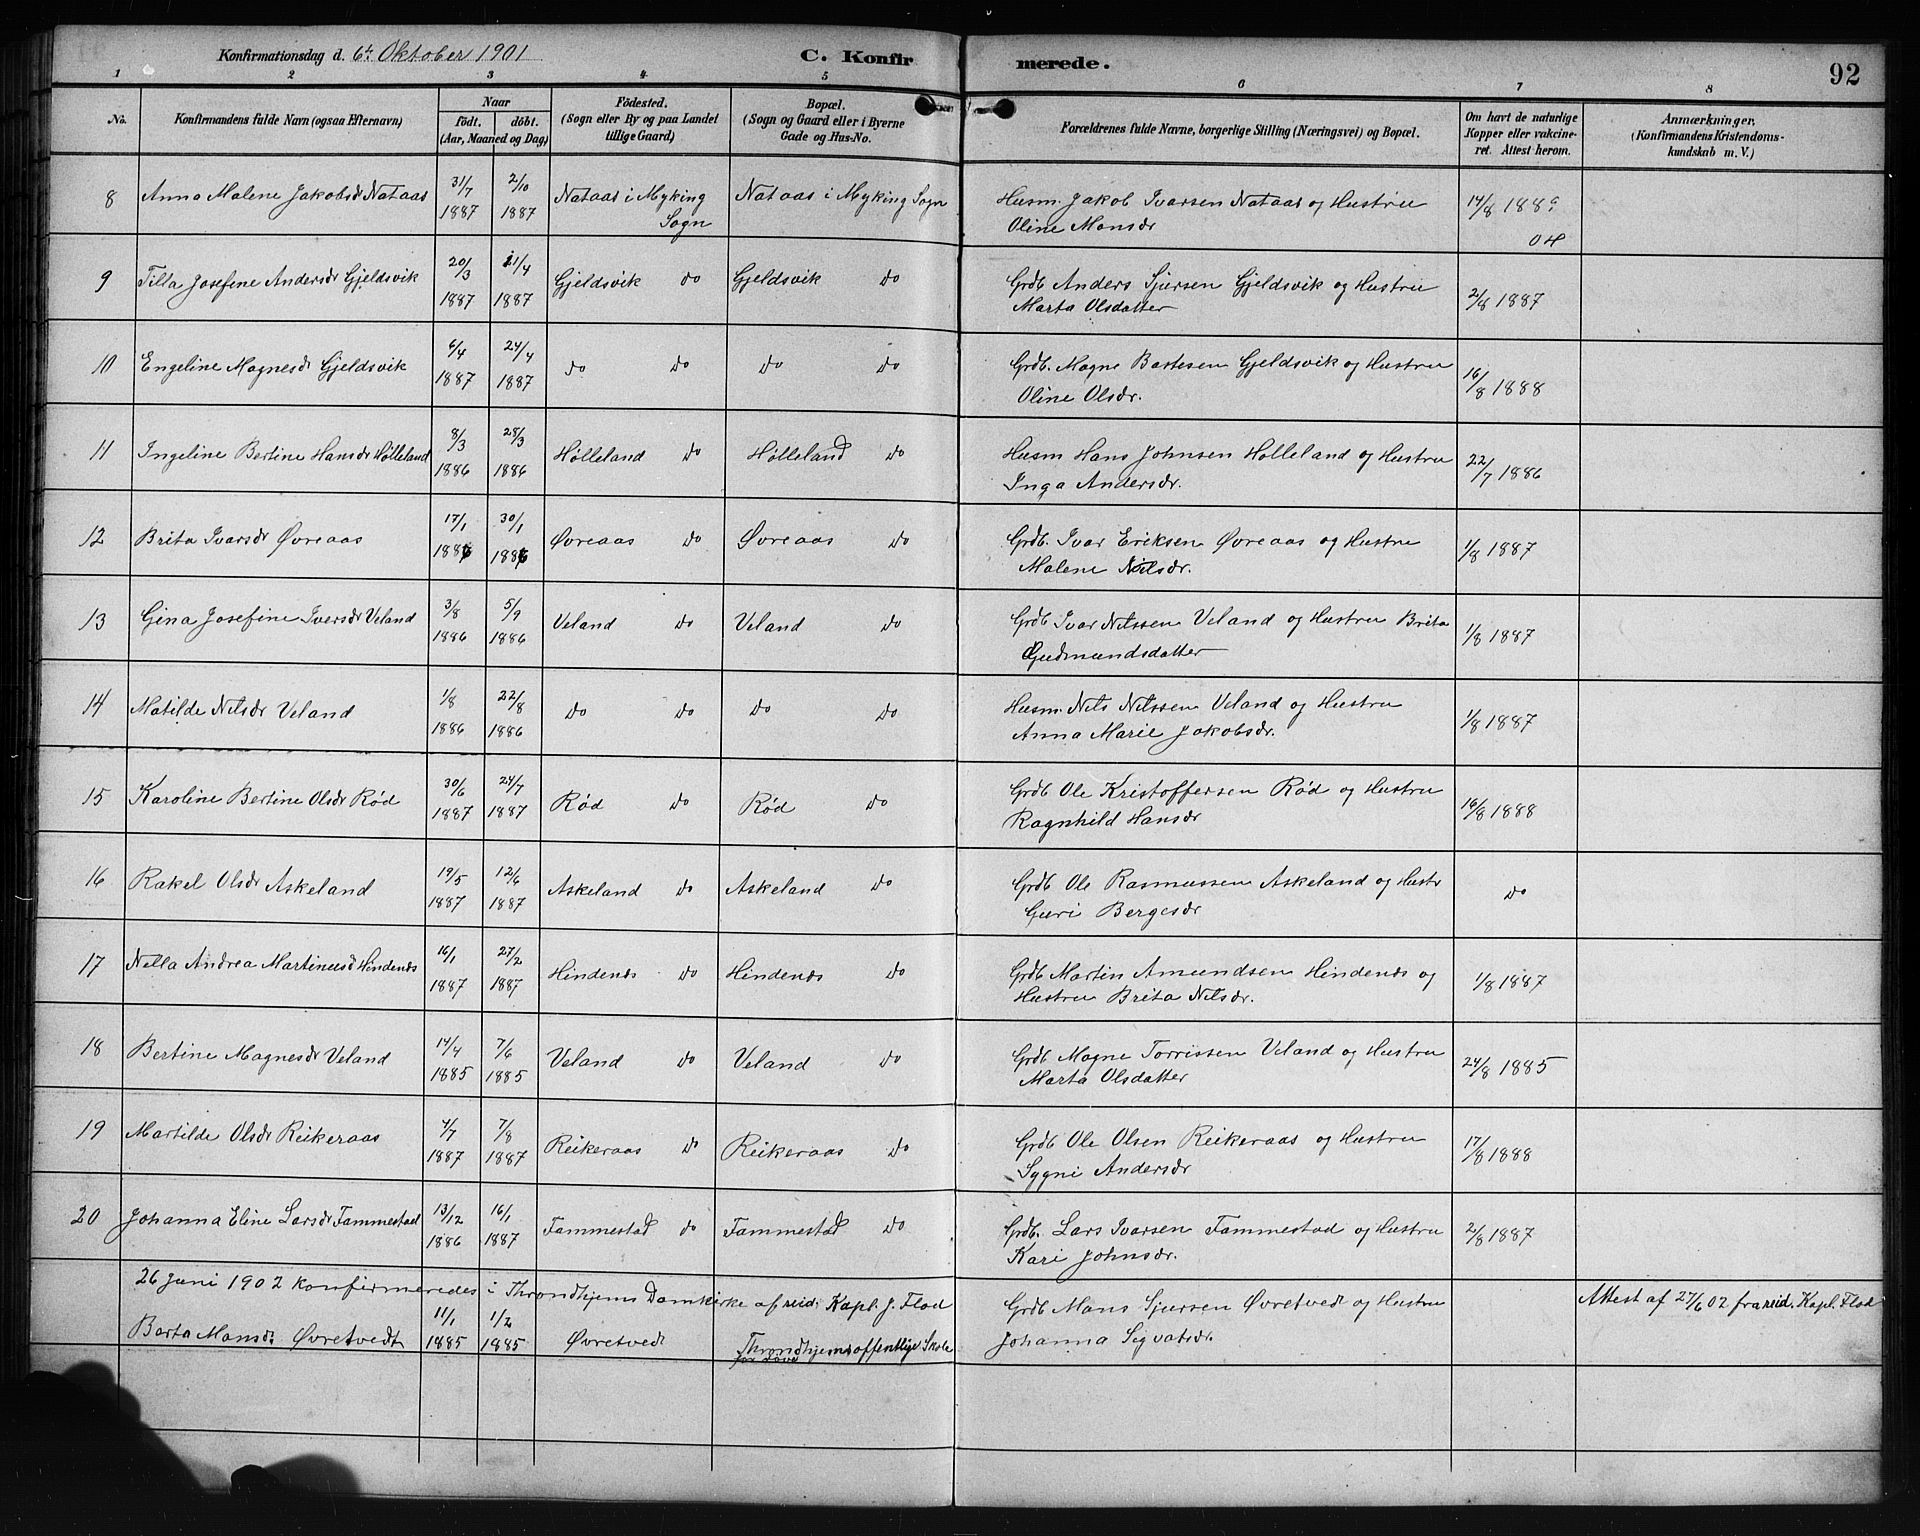 Konfirmationsdag d. 6te Oktober 1901 C. Konfir merede. 92
1 2 3 4 5 6 7 8
No. Konfirmandens fulde Navn (ogsaa Efternavn) Naar født. døbt. (Aar, Maaned og Dag) Födested. (Sogn eller By og paa Landet tillige Gaard) Bopæl. (Sogn og Gaard eller i Byerne Gade og Hus-No. Forældrenes fulde Navne, borgerlige Stilling (Næringsvei) og Bopæl. Om havt de naturlige Kopper eller vakcineret. Attest herom. Anmærkninger, (Konfirmandens Kristendomskundskab m. V.)
8 Anna Malene Jakobsdr Nataas 31/7 1887 2/10 1887 Nataas i Myking Sogn Nataas i Myking Sogn Husm. Jakob Ivarsen Nataas og Hustru 14/8 1889
Oline Monsdr
9 Tilla Josefine Andersdr Gjeldsvik 20/3 1887 11/4 1887 Gjeldsvik do Gjeldsvik do Grdb Anders Sjursen Gjeldsvik og Hustru 2/8 1887
Marta Olsdatter
10 Engeline Magnesdr Gjeldsvik 6/4 1887 24/4 1887 do do do do Grdb. Magne Bastesen Gjeldsvik og Hustru 16/8 1888
Oline Olsdr.
11 Ingeline Bertine Hansdr Hølleland 8/3 1886 28/3 1886 Hølleland do Hølleland do Husm Hans Johnsen Hølleland og Hustru 22/7 1886
Inga Andersdr.
12 Brita Ivarsdr Øvreaas 17/1 1886 30/1 1886 Øvreaas do Øvreaas do Grdb. Ivar Eriksen Øvreaas og Hustru 1/8 1887
Malene Nilsdr.
13 Gina Josefine Iversdr Veland 3/8 1886 5/9 1886 Veland do Veland do Grdb Ivar Nilssen Veland og Hustru Brita 1/8 1887
Gudmundsdatter
14 Matilde Nilsdr Veland 1/8 1886 22/8 1886 do do do do Husm. Nils Nilssen Veland og Hustru 1/8 1887
Anna Marie Jakobsdr.
15 Karoline Bertine Olsdr Rød 30/6 1887 24/7 1887 Rød do Rød do Grdb Ole Kristoffersen Rød og Hustru 16/8 1888
Ragnhild Hansdr
16 Rakel Olsdr Askeland 19/5 1887 12/6 1887 Askeland do Askeland do Grdb Ole Rasmussen Askeland og Hustr do
Guri Bergesdr
17 Nella Andrea Martinusd Hindenes 16/1 1887 27/2 1887 Hindenes do Hindenes do Grdb Martin Amundsen Hindenes og 1/8 1887
Hustru Brita Nilsdr.
18 Bertine Magnesdr Veland 14/4 1885 7/6 1885 Veland do Veland do Grdb Magne Torrissen Veland og Hustru 24/8 1885
Marta Olsdatter
19 Martilde Olsdr Reikeraas 4/7 1887 7/8 1887 Reikeraas do Reikeraas do Grdb Ole Olsen Reikeraas og Hustru 17/8 1888
Sygni Andersdr
20 Johanna Eline Larsdr Fammestad 13/12 1886 16/1 1887 Fammestad do Fammestad do Grdb. Lars Ivarsen Fammestad og Hustru 2/8 1887
Kari Johnsdr.
26 Juni 1902 konfirmeredes i Throndhjems Domkirke af reid. Kapl. J. Flod Attest af 27/6 02 fra reid. Kapl. Flod
Berta Monsdr Øvretvedt 11/1 1885 1/2 1885 Øvretvedt Throndhjems offentlige Skole for Døve Grdb Mons Sjursen Øvretvedt og Hustru
Johanna Sigvatsdr.